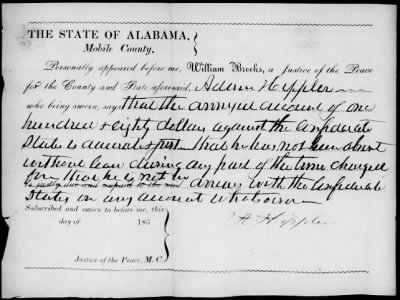 THE STATE OF ALABAMA,
Mobile County.
Personally appeared before me, William Brooks, a Justice of the Peace
for the County and State aforesaid, Adam Hippler
who being sworn, say that the annexed account of one
hundred & eighty dollars against the Confederate
States is accurate & just that he has not been absent
without leave during any part of the time charged
for, that he is not in arrears with the Confederate
is justly due and unpaid to the said
States on any account whatsoever
Subscribed and sworn to before me, this
day of 186
A Hippler
Justice of the Peace, M. C.